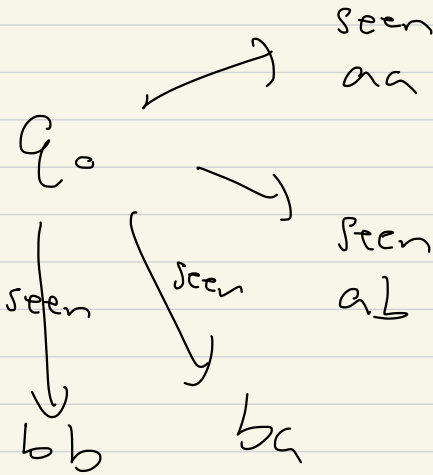 seen
aa
q0
seen
ab
seen
seen
bb
ba